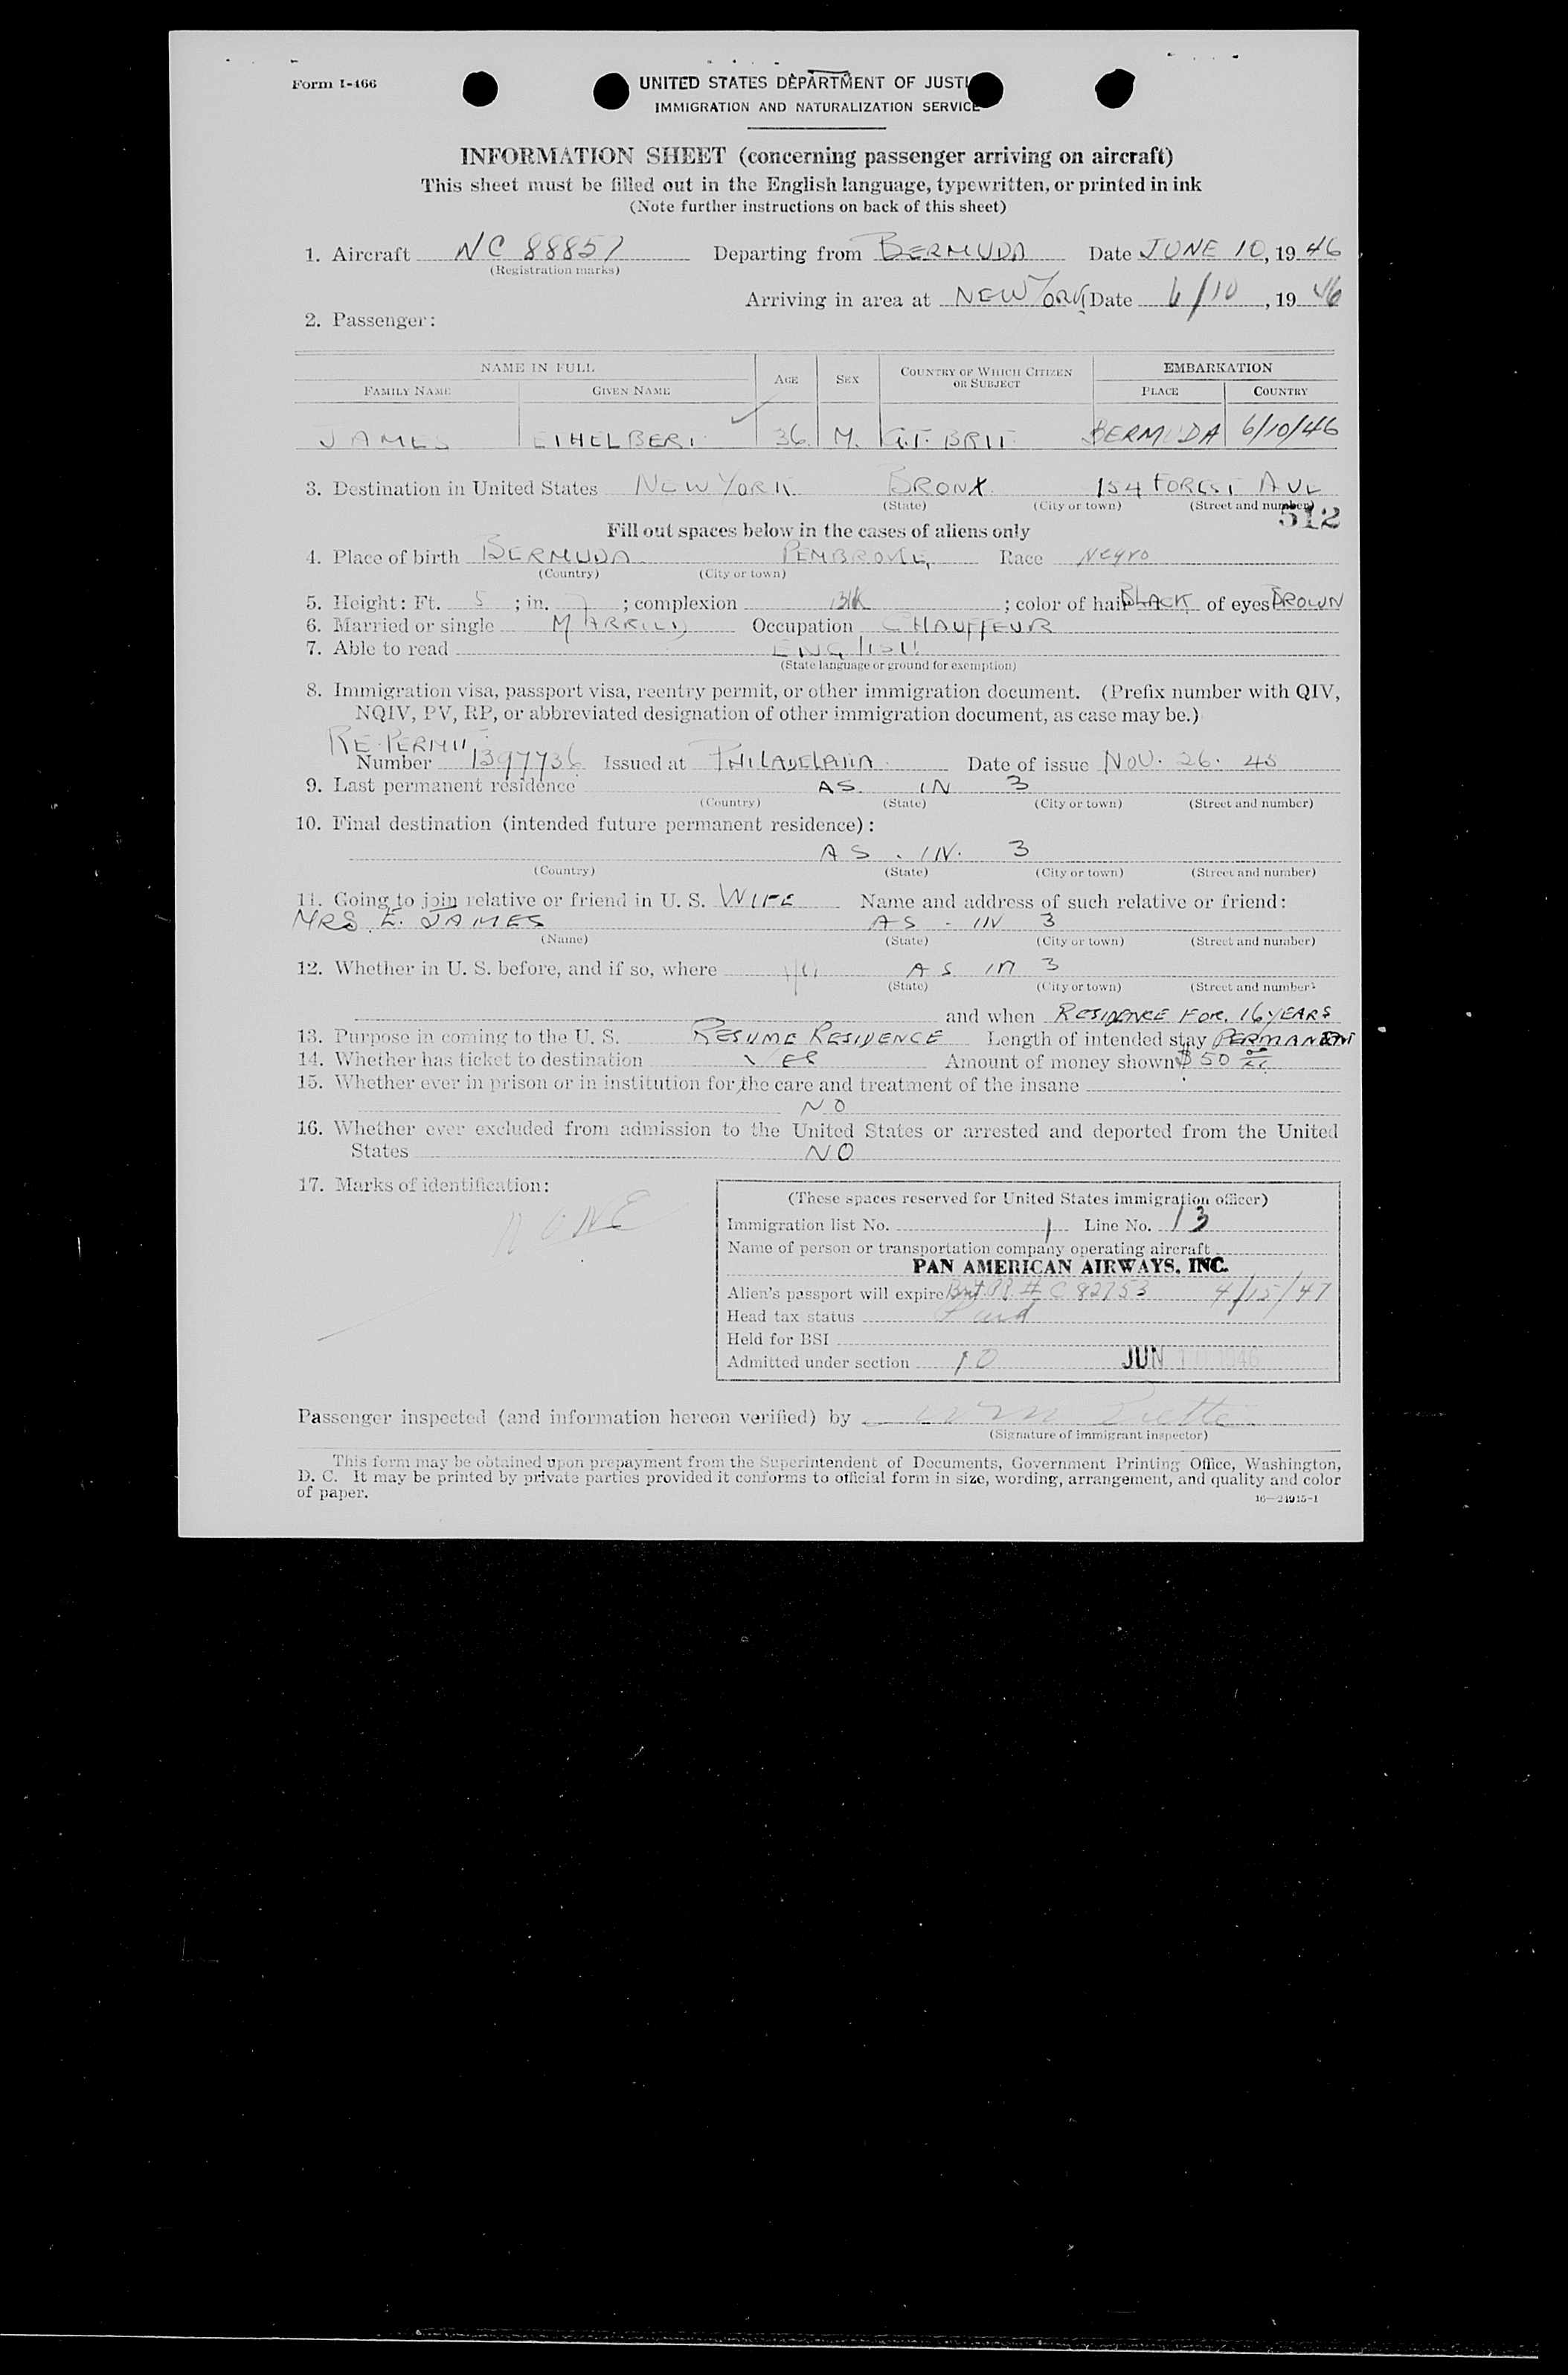 Form I-466
UNITED STATES DEPARTMENT OF JUSTI
IMMIGRATION AND NATURALIZATION SERVICE
INFORMATION SHEET (concerning passenger arriving on aircraft)
This sheet must be filled out in the English language, typewritten, or printed in ink
(Note further instructions on back of this sheet)
1. Aircraft NC 88857 Departing from BERMUDA Date JUNE 10, 19 46
(Registration marks)
Arriving in area at NEW YORK Date 6/10, 19 46
2. Passenger:
NAME IN FULL AGE SEX COUNTRY OF WHICH CITIZEN OR SUBJECT EMBARKATION
FAMILY NAME GIVEN NAME PLACE COUNTRY
JAMES ETHELBERT 36 M. GT. BRIT BERMUDA 6/10/46
3. Destination in United States NEW YORK BRONX 154 FOREST AVE
(State) (City or town) (Street and number)
512
Fill out spaces below in the cases of aliens only
4. Place of birth BERMUDA PEMBROKE Race Negro
(Country) (City or town)
5. Height: Ft. 5 ; in. 7 ; complexion Blk ; color of hair BLACK of eyes BROWN
6. Married or single MARRIED Occupation CHAUFFEUR
7. Able to read ENGLISH
(State language or ground for exemption)
8. Immigration visa, passport visa, reentry permit, or other immigration document. (Prefix number with QIV,
NQIV, PV, RP, or abbreviated designation of other immigration document, as case may be.)
RE-PERMIT
Number 1397736 Issued at PHILADELPHIA Date of issue NOV. 26. 45
9. Last permanent residence AS IN 3
(Country) (State) (City or town) (Street and number)
10. Final destination (intended future permanent residence):
AS . IN. 3
(Country) (State) (City or town) (Street and number)
11. Going to join relative or friend in U. S. WIFE Name and address of such relative or friend:
MRS. E. JAMES AS - IN 3
(Name) (State) (City or town) (Street and number)
12. Whether in U. S. before, and if so, where AS IN 3
(State) (City or town) (Street and number)
and when RESIDENCE FOR. 16 YEARS
13. Purpose in coming to the U. S. RESUME RESIDENCE Length of intended stay PERMANENT
14. Whether has ticket to destination YES Amount of money shown $50
15. Whether ever in prison or in institution for the care and treatment of the insane
NO
16. Whether ever excluded from admission to the United States or arrested and deported from the United
States NO
17. Marks of identification:
NONE
(These spaces reserved for United States immigration officer)
Immigration list No. 1 Line No. 13
Name of person or transportation company operating aircraft
PAN AMERICAN AIRWAYS, INC.
Alien's passport will expire Brit. PP. # C 82753 4/15/47
Head tax status Paid
Held for BSI
Admitted under section 10 JUN 10 1946
Passenger inspected (and information hereon verified) by
(Signature of immigrant inspector)
This form may be obtained upon prepayment from the Superintendent of Documents, Government Printing Office, Washington,
D. C. It may be printed by private parties provided it conforms to official form in size, wording, arrangement, and quality and color
of paper.
16—24915-1